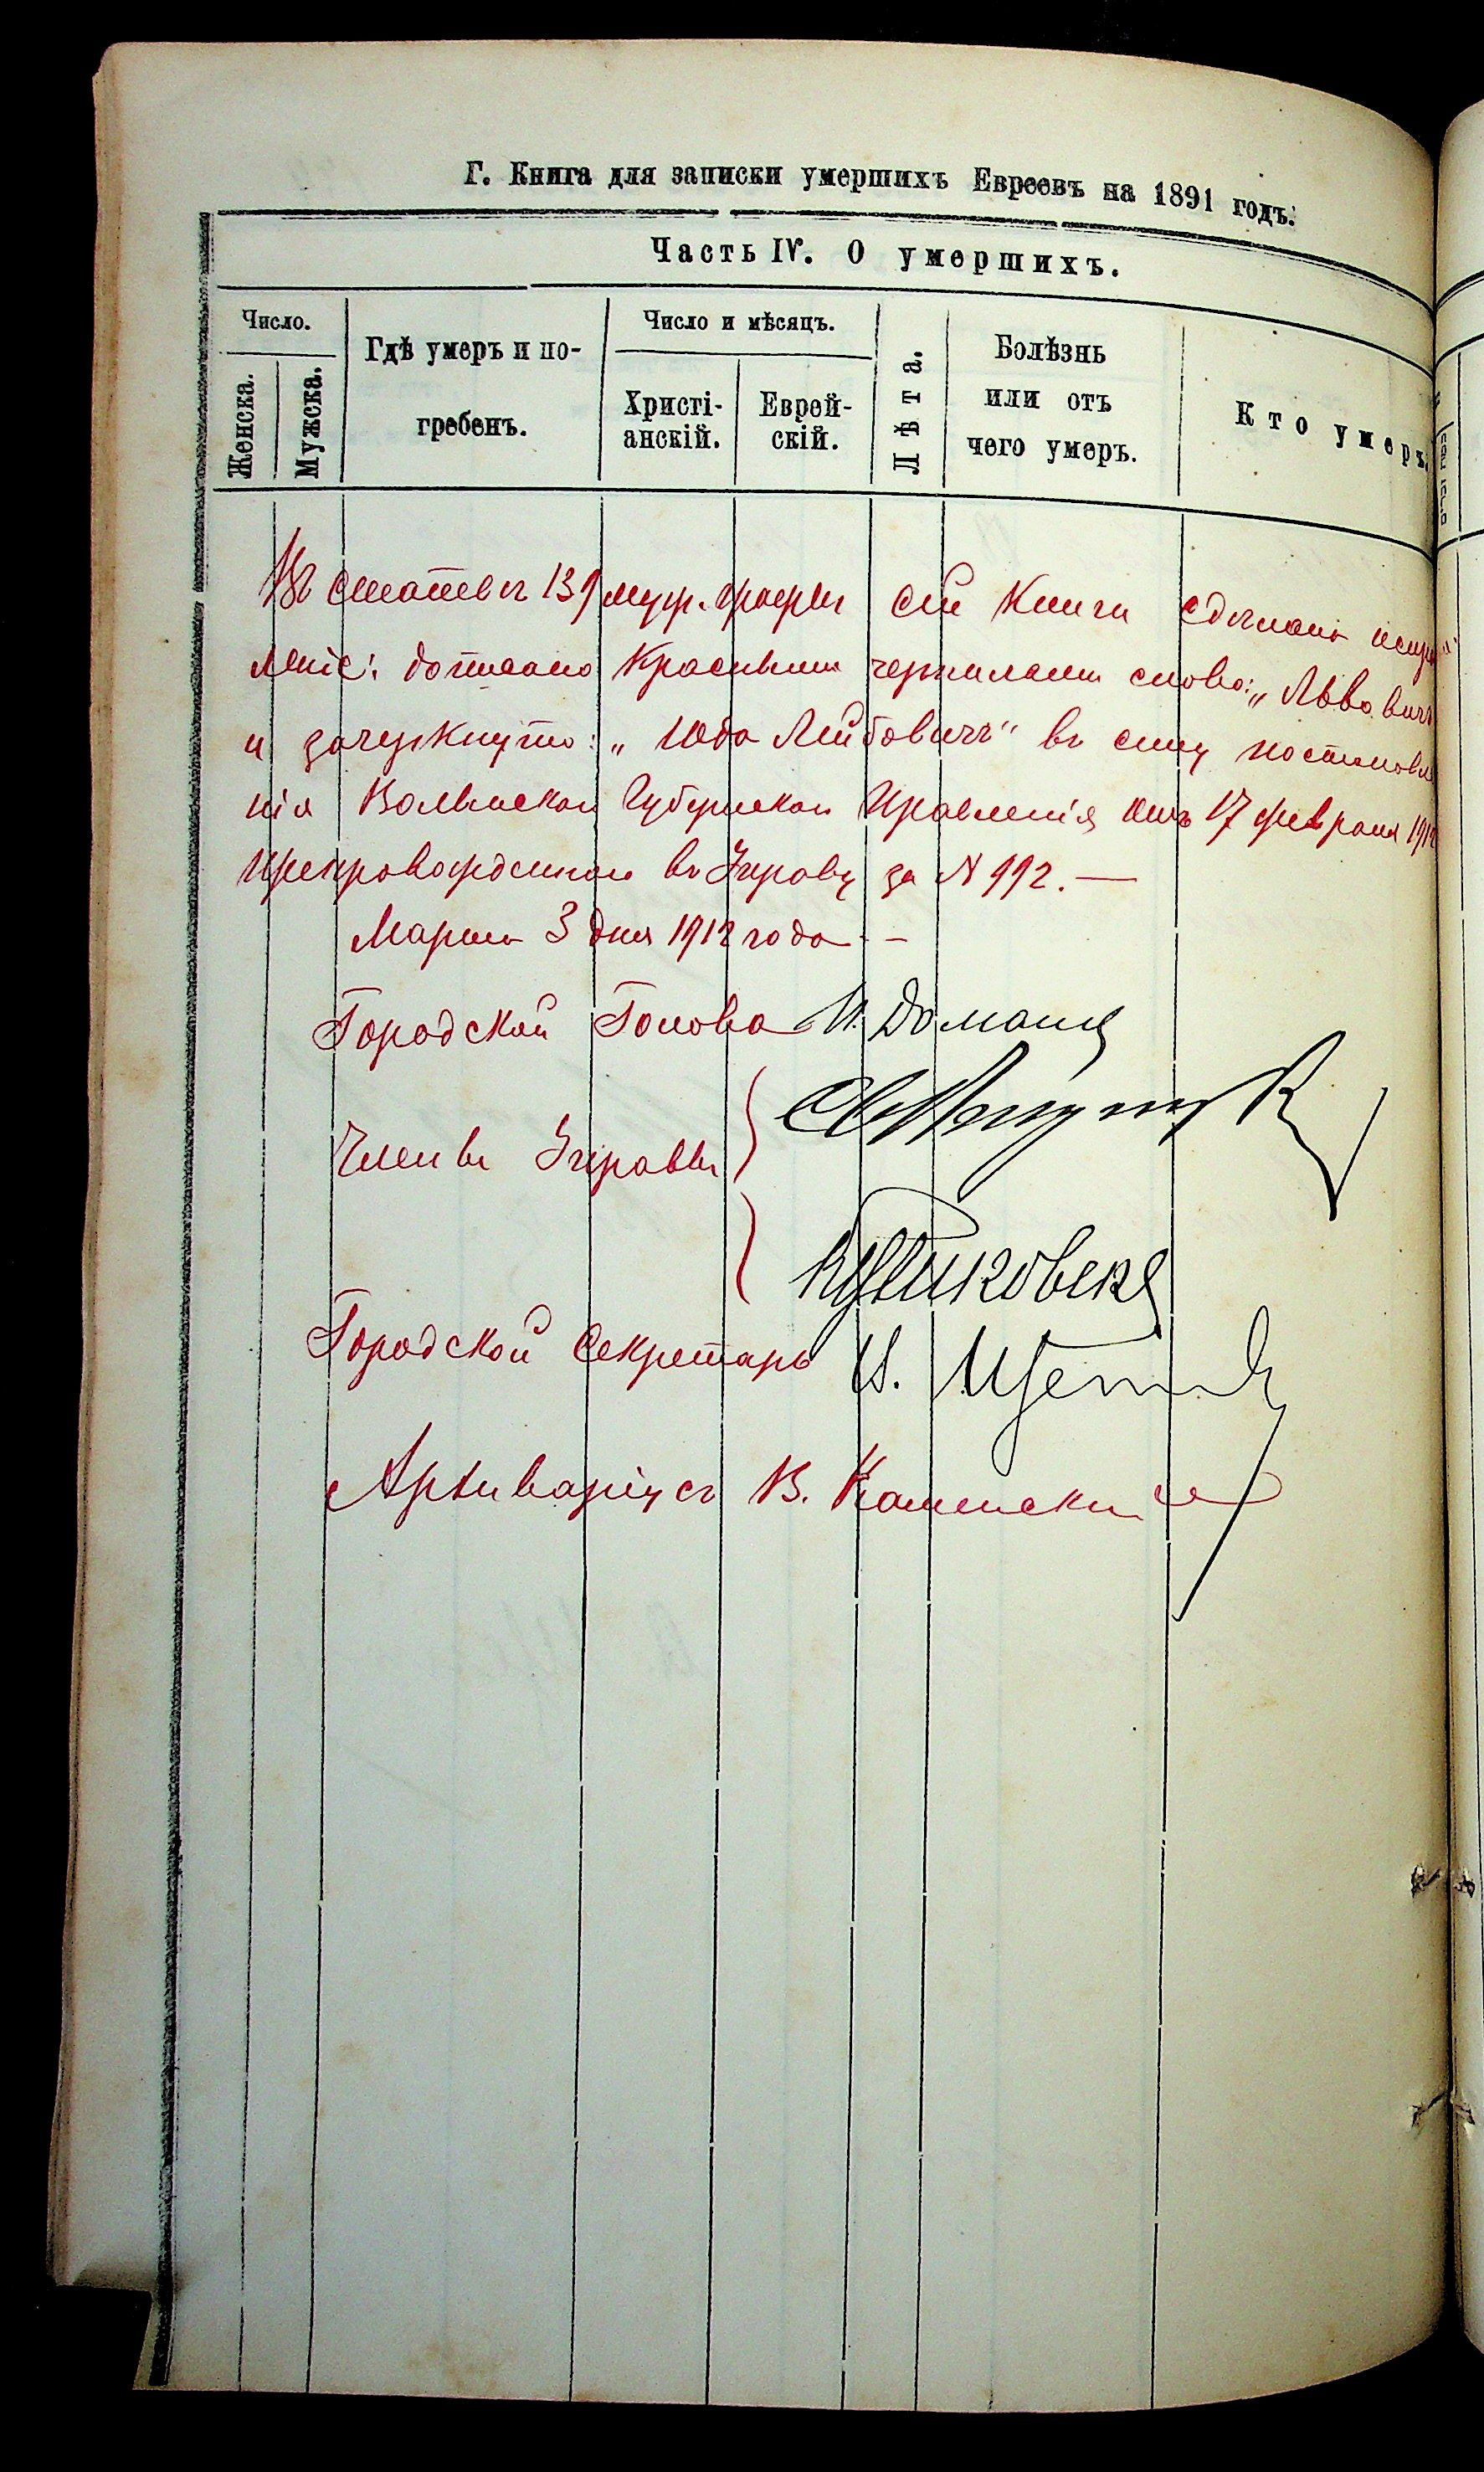 Г. Книга для записки умершихъ Евреевъ на 1891 годъ.
Часть IV. О умершихъ.
Число.
Женска.
Мужска.
Гдѣ умеръ и по-
гребенъ.
Число и мѣсяцъ.
Христі-
анскій.
Еврей-
скій.
Лѣта.
Болѣзнь
или отъ
чего умеръ.
Кто умеръ.
Въ статьѣ 139 муж. графы сей Книги сдѣлано испра
леніе: дописано Красными чернилами слово: „Львовичъ
и зачеркнуто: „Юдо Лейбовичъ" въ силу постановле
нія Волынскаго Губернскаго Правленія отъ 17 февраля 1912
препровожденнаго въ Управу за N 992.—
Марта 3 дня 1912 года.—
Городской Голова И. Домани
Члены Управы
Городской Секретарь И.
Архиваріусъ В. Каменскій